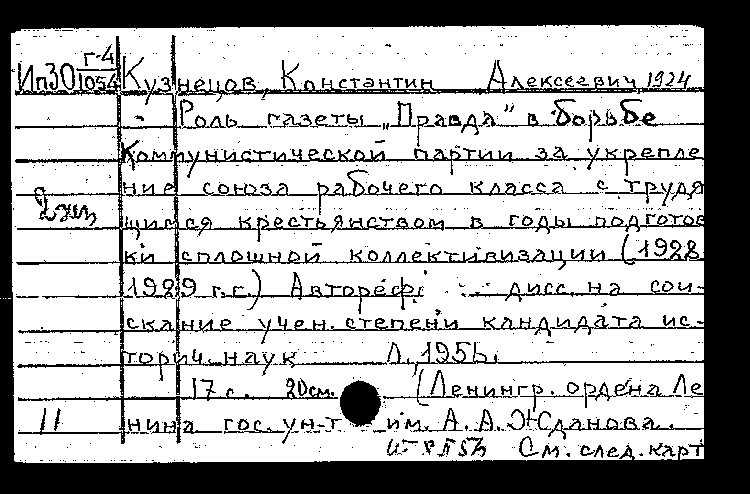 Ип30 г-4/1054 Кузнецов, Константин Алексеевич, 1924
- Роль газеты „Правда" в борьбе
Коммунистической партии за укрепле
ние союза рабочего класса с трудя
щимся крестьянством в годы подготов
ки сплошной коллективизации (1928
1929 г.г.) Автореф. дисс. на сои-
скание учен. степени кандидата ис-
торич. наук Л., 1955.
17 с. 20 см. (Ленингр. ордена Ле
11 нина гос. ун-т им. А. А. Жданова.
См. след. карт